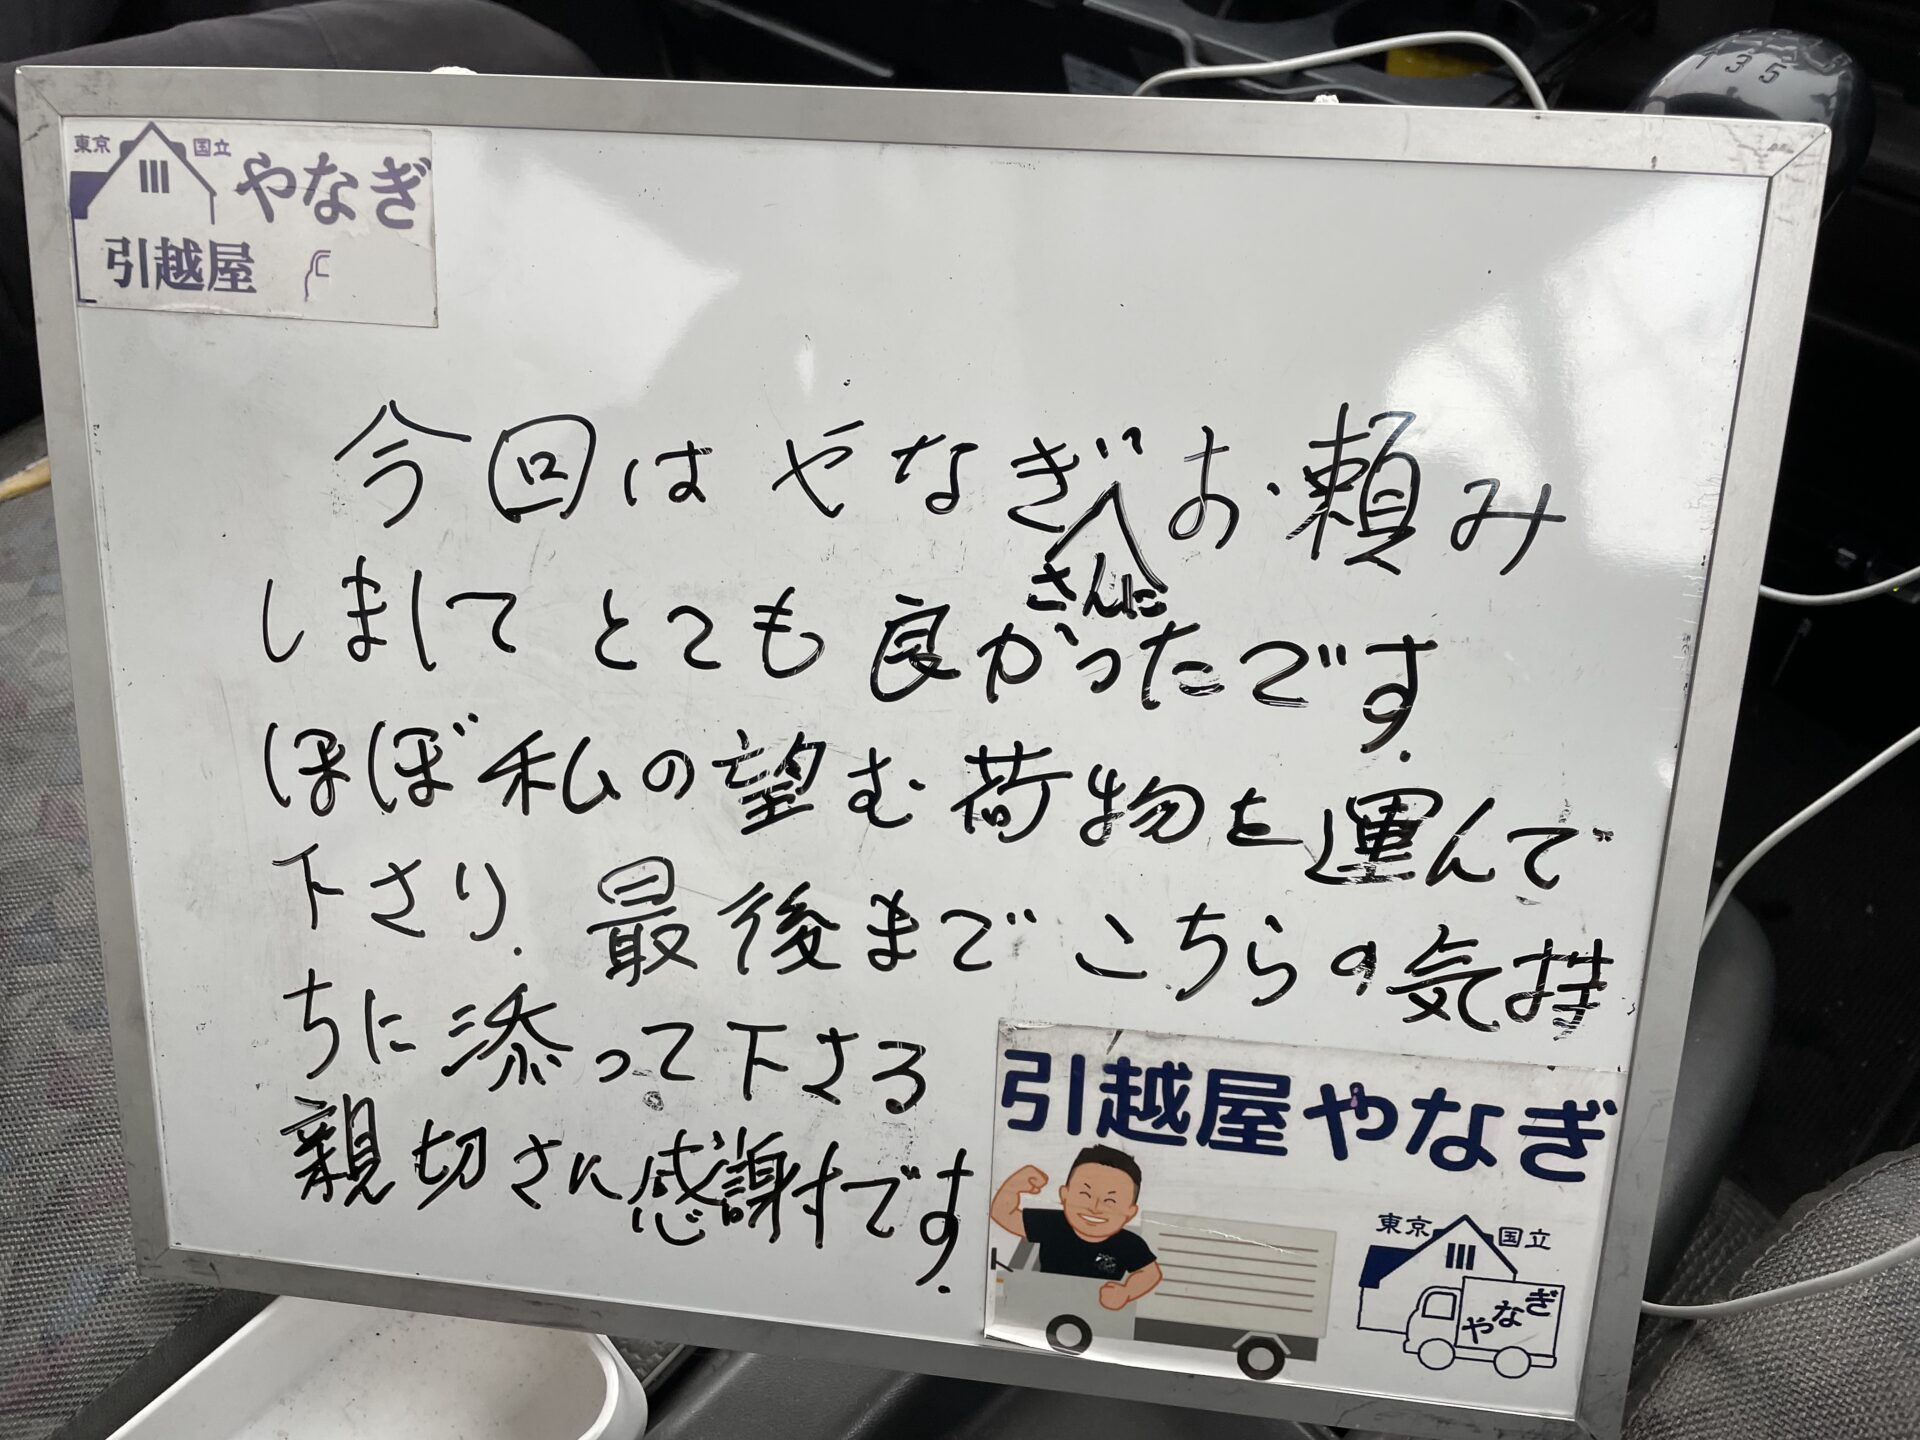 東京 国立
やなぎ
引越屋
今回はやなぎさんにお頼み
しましてとても良かったです.
ほぼ私の望む荷物を運んで
下さり.最後までこちらの気持
ちに添って下さる
親切さに感謝です.
引越屋やなぎ
東京 国立
やなぎ
1 3 5